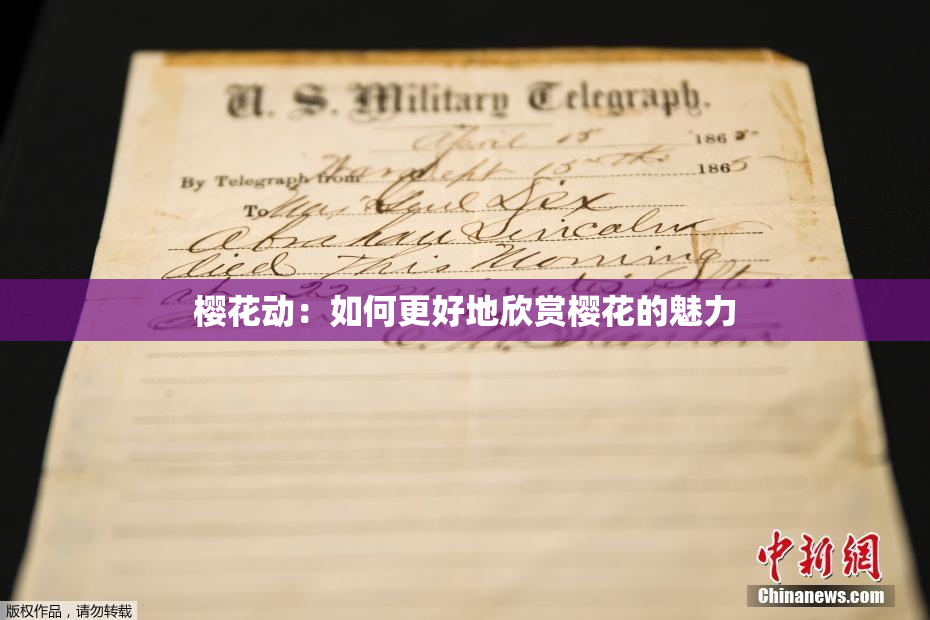 U. S. Military Telegraph.
April 15 1865
By Telegraph from War Dept 15th 1865
To Maj Genl Dix
Abraham Lincoln
died This Morning
at 22 minutes after
樱花动：如何更好地欣赏樱花的魅力
E. M. Stanton
中新网
版权作品，请勿转载
Chinanews.com